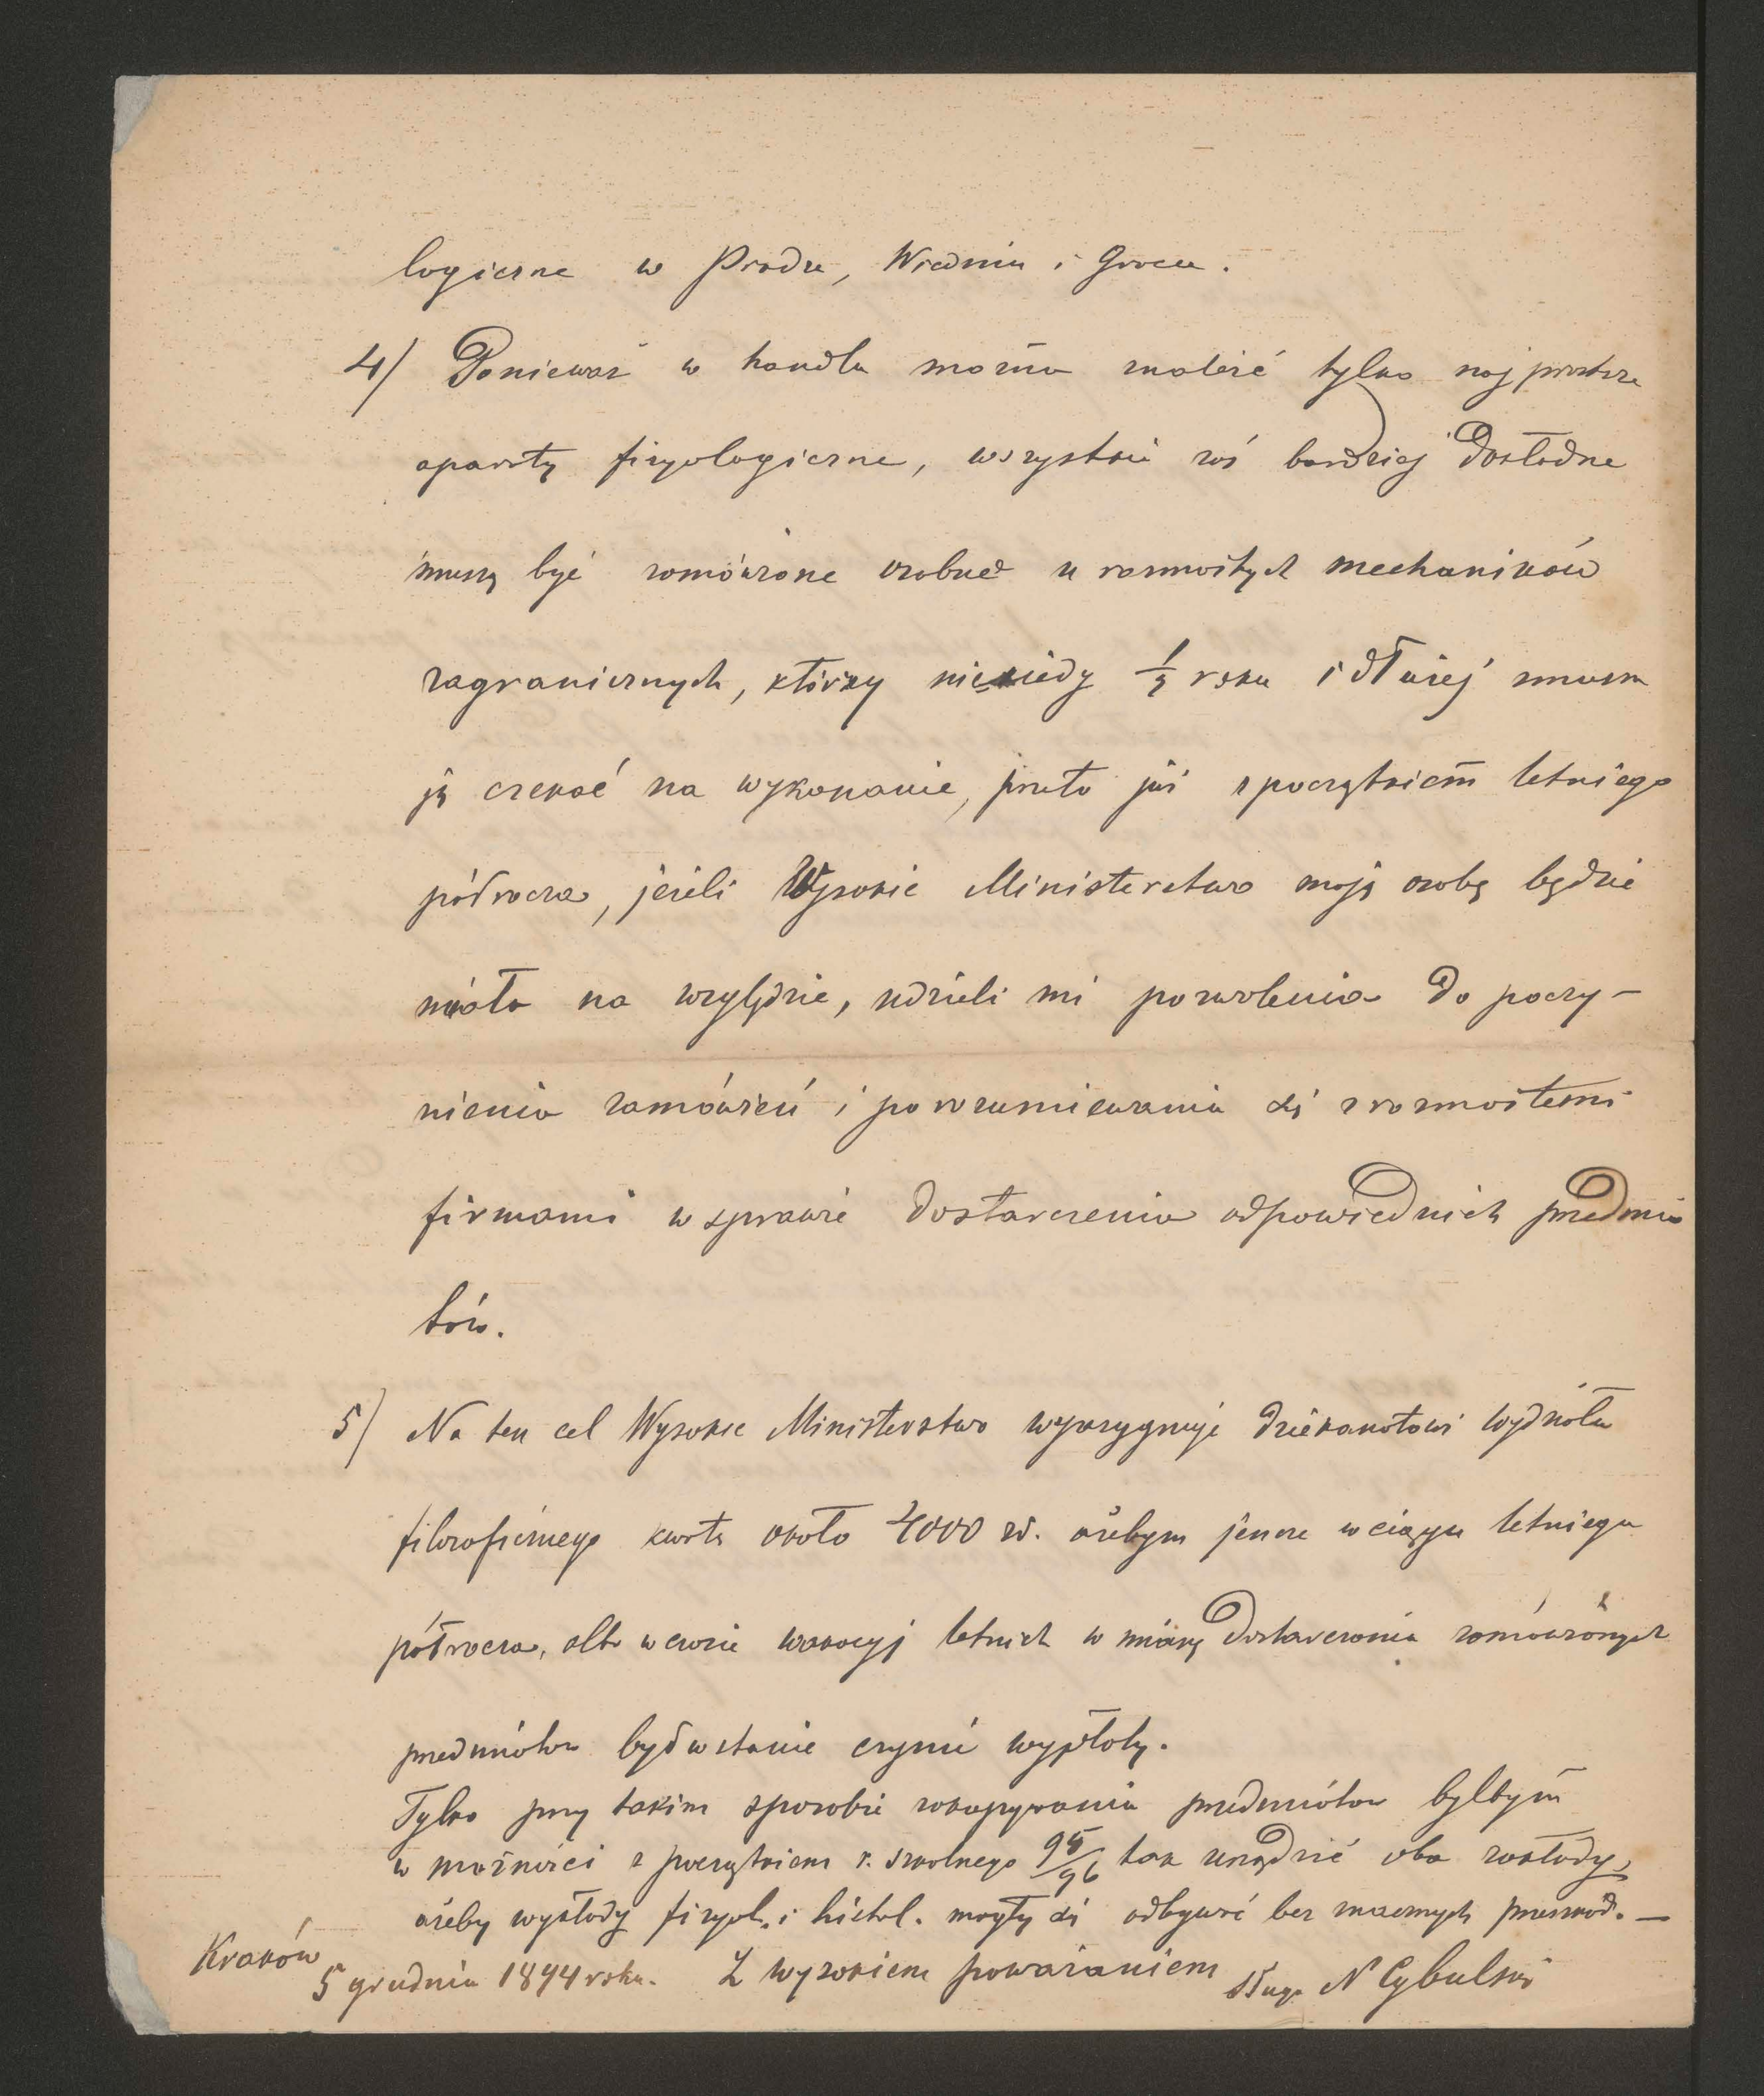 logiczne w Pradze, Wiedniu i Gracu.
4) Ponieważ w handlu można znaleźć tylko najprostsze
aparaty fizyologiczne, wszystkie zaś bardziej dokładne
muszą być zamówione osobno u rozmaitych mechaników
zagranicznych, którzy niekiedy ½ roku i dłużej zmusza
ją czekać na wykonanie, przeto już z początkiem letniego
półrocza, jeżeli Wysokie Ministerstwo moją osobę będzie
miało na względzie, udzieli mi pozwolenia do poczy-
nienia zamówień i porozumiewania się z rozmaitemi
firmami w sprawie dostarczenia odpowiednich przedmio
tów.
5) Na ten cel Wysokie Ministerstwo wyasygnuje dziekanatowi wydziału
filozoficznego kwotę około 4000 zł. ażebym jeszcze w ciągu letniego
półrocza, albo w czasie wakacyj letnich w miarę dostarczenia zamówionych
przedmiotów był w stanie czynić wypłaty.
Tylko przy takim sposobie zakupywania przedmiotów byłbym
w możności z początkiem r. szkolnego 95/96 tak urządzić oba zakłady,
ażeby wykłady fizyol. i histol. mogły się odbywać bez znacznych przeszkód. —
Kraków
5 grudnia 1894 roku. Z wysokiem poważaniem sługa N Cybulski